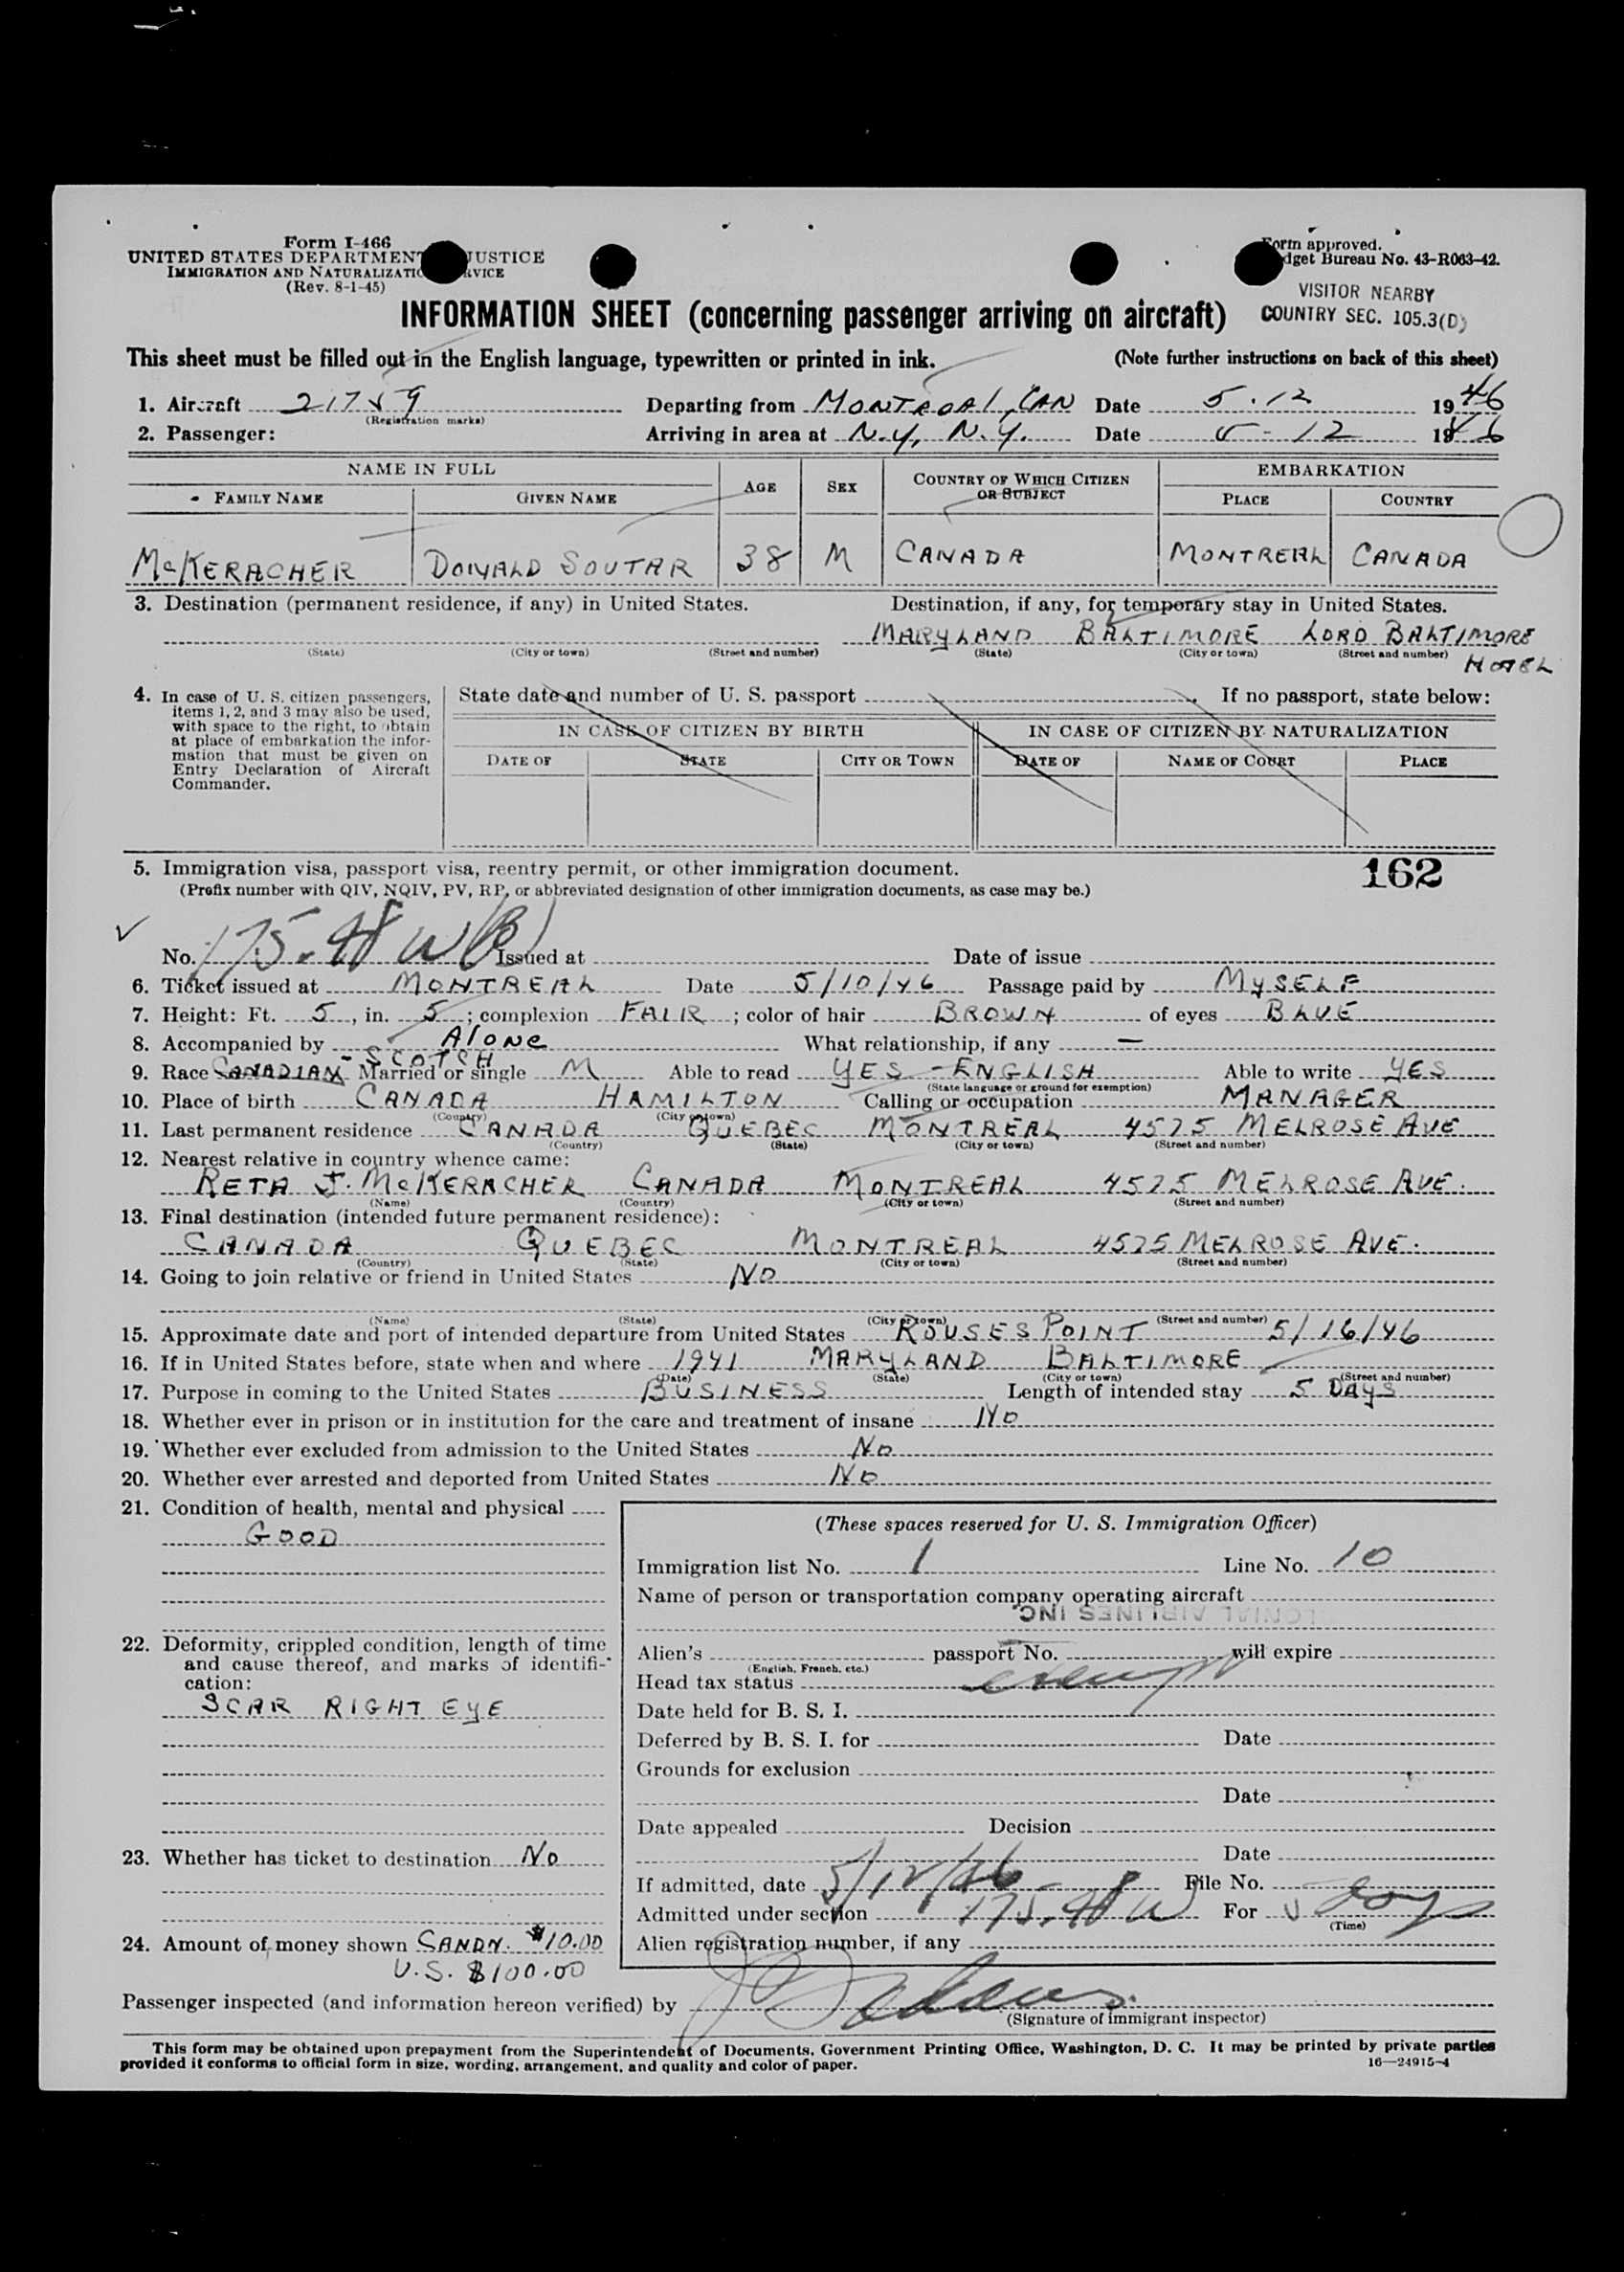 Form I-466
UNITED STATES DEPARTMENT JUSTICE
IMMIGRATION AND NATURALIZATION SERVICE
(Rev. 8-1-45)
Form approved.
Budget Bureau No. 43-R063-42.
VISITOR NEARBY
COUNTRY SEC. 105.3(D)
INFORMATION SHEET (concerning passenger arriving on aircraft)
This sheet must be filled out in the English language, typewritten or printed in ink. (Note further instructions on back of this sheet)
1. Aircraft Departing from MONTREAL, CAN Date 5.12 1946
(Registration marks)
2. Passenger: Arriving in area at N.Y, N.Y. Date 5-12 1946
NAME IN FULL AGE SEX COUNTRY OF WHICH CITIZEN OR SUBJECT EMBARKATION
FAMILY NAME GIVEN NAME PLACE COUNTRY
McKERACHER DONALD SOUTAR 38 M CANADA MONTREAL CANADA
3. Destination (permanent residence, if any) in United States. Destination, if any, for temporary stay in United States.
MARYLAND BALTIMORE LORD BALTIMORE
(State) (City or town) (Street and number) (State) (City or town) (Street and number) HOTEL
4. In case of U. S. citizen passengers, items 1, 2, and 3 may also be used, with space to the right, to obtain at place of embarkation the information that must be given on Entry Declaration of Aircraft Commander.
State date and number of U. S. passport If no passport, state below:
IN CASE OF CITIZEN BY BIRTH IN CASE OF CITIZEN BY NATURALIZATION
DATE OF STATE CITY OR TOWN DATE OF NAME OF COURT PLACE
5. Immigration visa, passport visa, reentry permit, or other immigration document. 162
(Prefix number with QIV, NQIV, PV, RP, or abbreviated designation of other immigration documents, as case may be.)
No. Issued at Date of issue
6. Ticket issued at MONTREAL Date 5/10/46 Passage paid by MYSELF
7. Height: Ft. 5, in. 5; complexion FAIR; color of hair BROWN of eyes BLUE
8. Accompanied by Alone What relationship, if any —
9. Race CANADIAN - SCOTCH Married or single M Able to read YES - ENGLISH Able to write YES
(State language or ground for exemption)
10. Place of birth CANADA HAMILTON Calling or occupation MANAGER
(Country) (City or town)
11. Last permanent residence CANADA QUEBEC MONTREAL 4575 MELROSE AVE
(Country) (State) (City or town) (Street and number)
12. Nearest relative in country whence came:
RETA J. McKERACHER CANADA MONTREAL 4575 MELROSE AVE.
(Name) (Country) (City or town) (Street and number)
13. Final destination (intended future permanent residence):
CANADA QUEBEC MONTREAL 4575 MELROSE AVE.
(Country) (State) (City or town) (Street and number)
14. Going to join relative or friend in United States NO
(Name) (State) (City or town) (Street and number)
15. Approximate date and port of intended departure from United States ROUSES POINT 5/16/46
16. If in United States before, state when and where 1941 MARYLAND BALTIMORE
(Date) (State) (City or town) (Street and number)
17. Purpose in coming to the United States BUSINESS Length of intended stay 5 DAYS
18. Whether ever in prison or in institution for the care and treatment of insane NO
19. Whether ever excluded from admission to the United States NO
20. Whether ever arrested and deported from United States NO
21. Condition of health, mental and physical
GOOD
22. Deformity, crippled condition, length of time
and cause thereof, and marks of identification:
SCAR RIGHT EYE
23. Whether has ticket to destination NO
24. Amount of money shown CANDN. $10.00
U.S. $100.00
(These spaces reserved for U. S. Immigration Officer)
Immigration list No. 1 Line No. 10
Name of person or transportation company operating aircraft
COLONIAL AIRLINES INC.
Alien's passport No. will expire
(English, French, etc.)
Head tax status exempt
Date held for B. S. I.
Deferred by B. S. I. for Date
Grounds for exclusion
Date
Date appealed Decision
Date
If admitted, date 5/12/46 File No.
Admitted under section For 5 days
(Time)
Alien registration number, if any
Passenger inspected (and information hereon verified) by
(Signature of immigrant inspector)
This form may be obtained upon prepayment from the Superintendent of Documents, Government Printing Office, Washington, D. C. It may be printed by private parties
provided it conforms to official form in size, wording, arrangement, and quality and color of paper. 16—24915-4